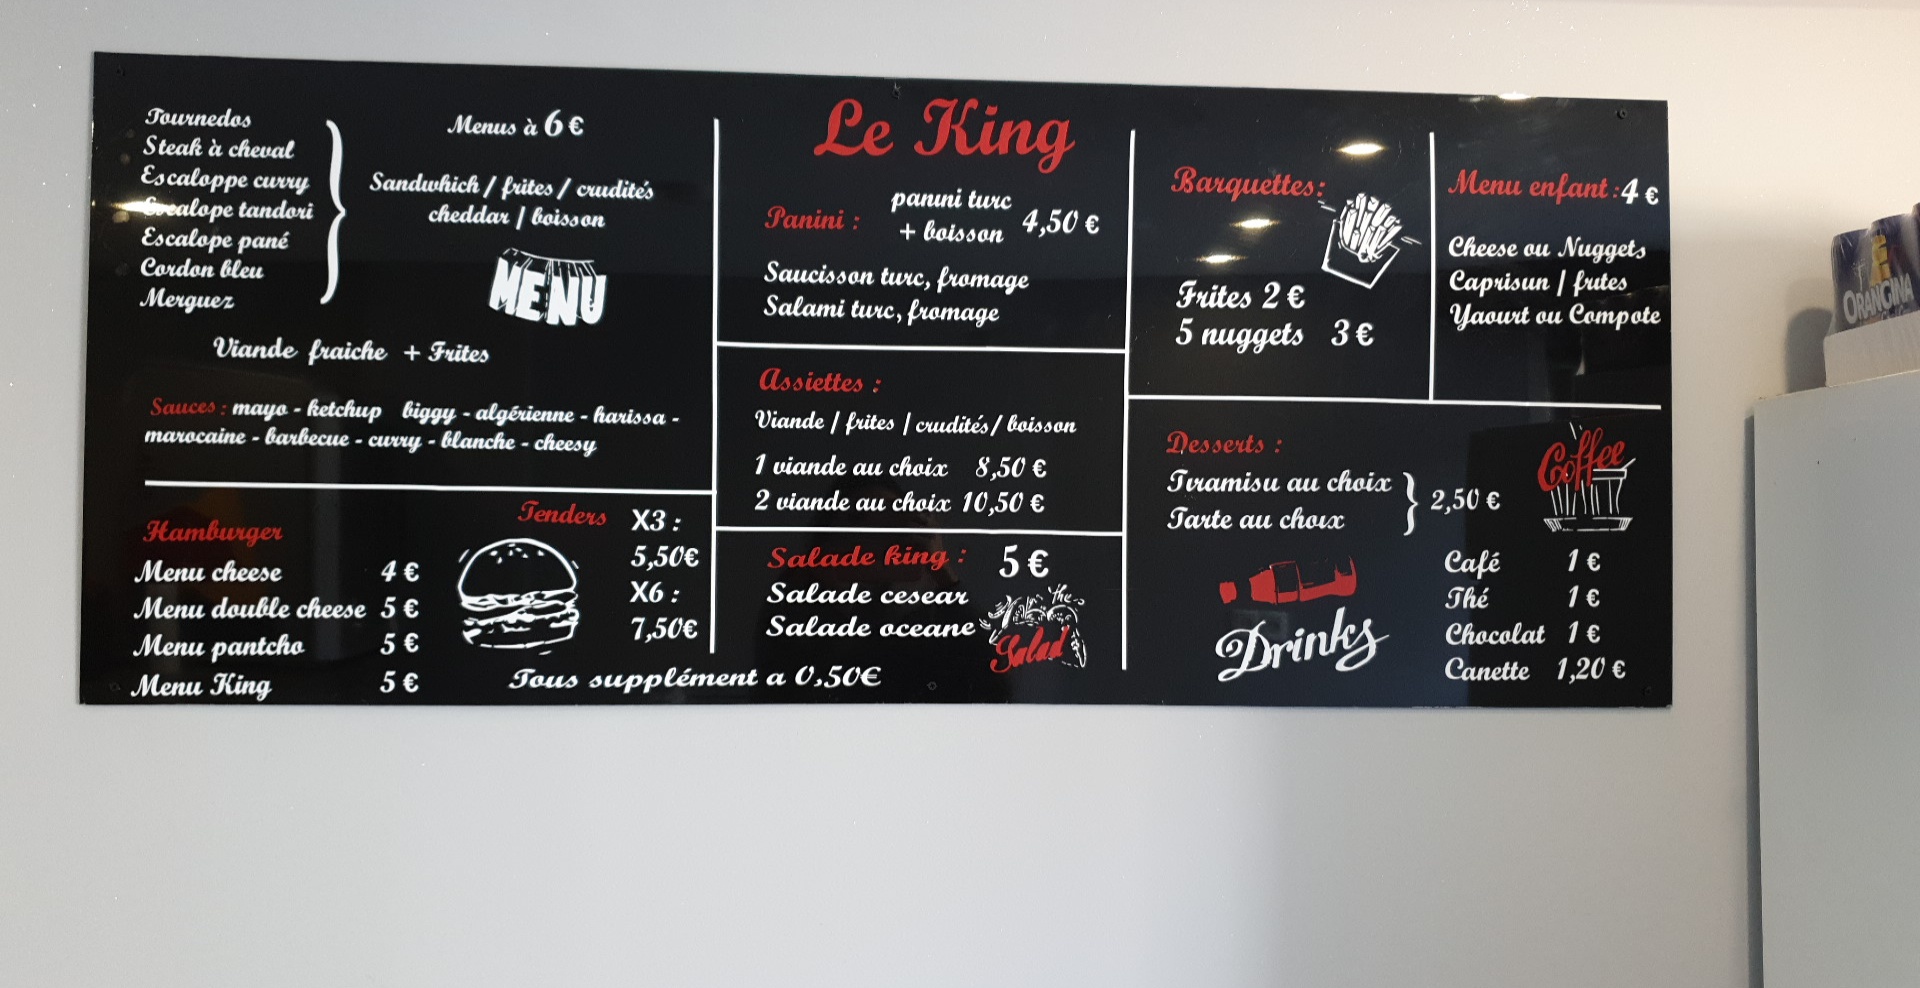 Tournedos
Steak à cheval
Escaloppe curry
Escalope tandori
Escalope pané
Cordon bleu
Merguez
Menus à 6 €
Sandwhich / frites / crudités
cheddar / boisson
MENU
Viande fraiche + Frites
Sauces : mayo - ketchup biggy - algérienne - harissa -
marocaine - barbecue - curry - blanche - cheesy
Hamburger
Menu cheese 4 €
Menu double cheese 5 €
Menu pantcho 5 €
Menu King 5 €
Tenders X3 :
5,50€
X6 :
7,50€
Tous supplément a 0,50€
Le King
Panini : panini turc
+ boisson 4,50 €
Saucisson turc, fromage
Salami turc, fromage
Assiettes :
Viande / frites / crudités / boisson
1 viande au choix 8,50 €
2 viande au choix 10,50 €
Salade king : 5 €
Salade cesear
Salade oceane
Salad
Barquettes :
Frites 2 €
5 nuggets 3 €
Menu enfant : 4 €
Cheese ou Nuggets
Caprisun / frites
Yaourt ou Compote
Desserts :
Tiramisu au choix
Tarte au choix
2,50 €
Coffee
Drinks
Café 1 €
Thé 1 €
Chocolat 1 €
Canette 1,20 €
ORANGINA